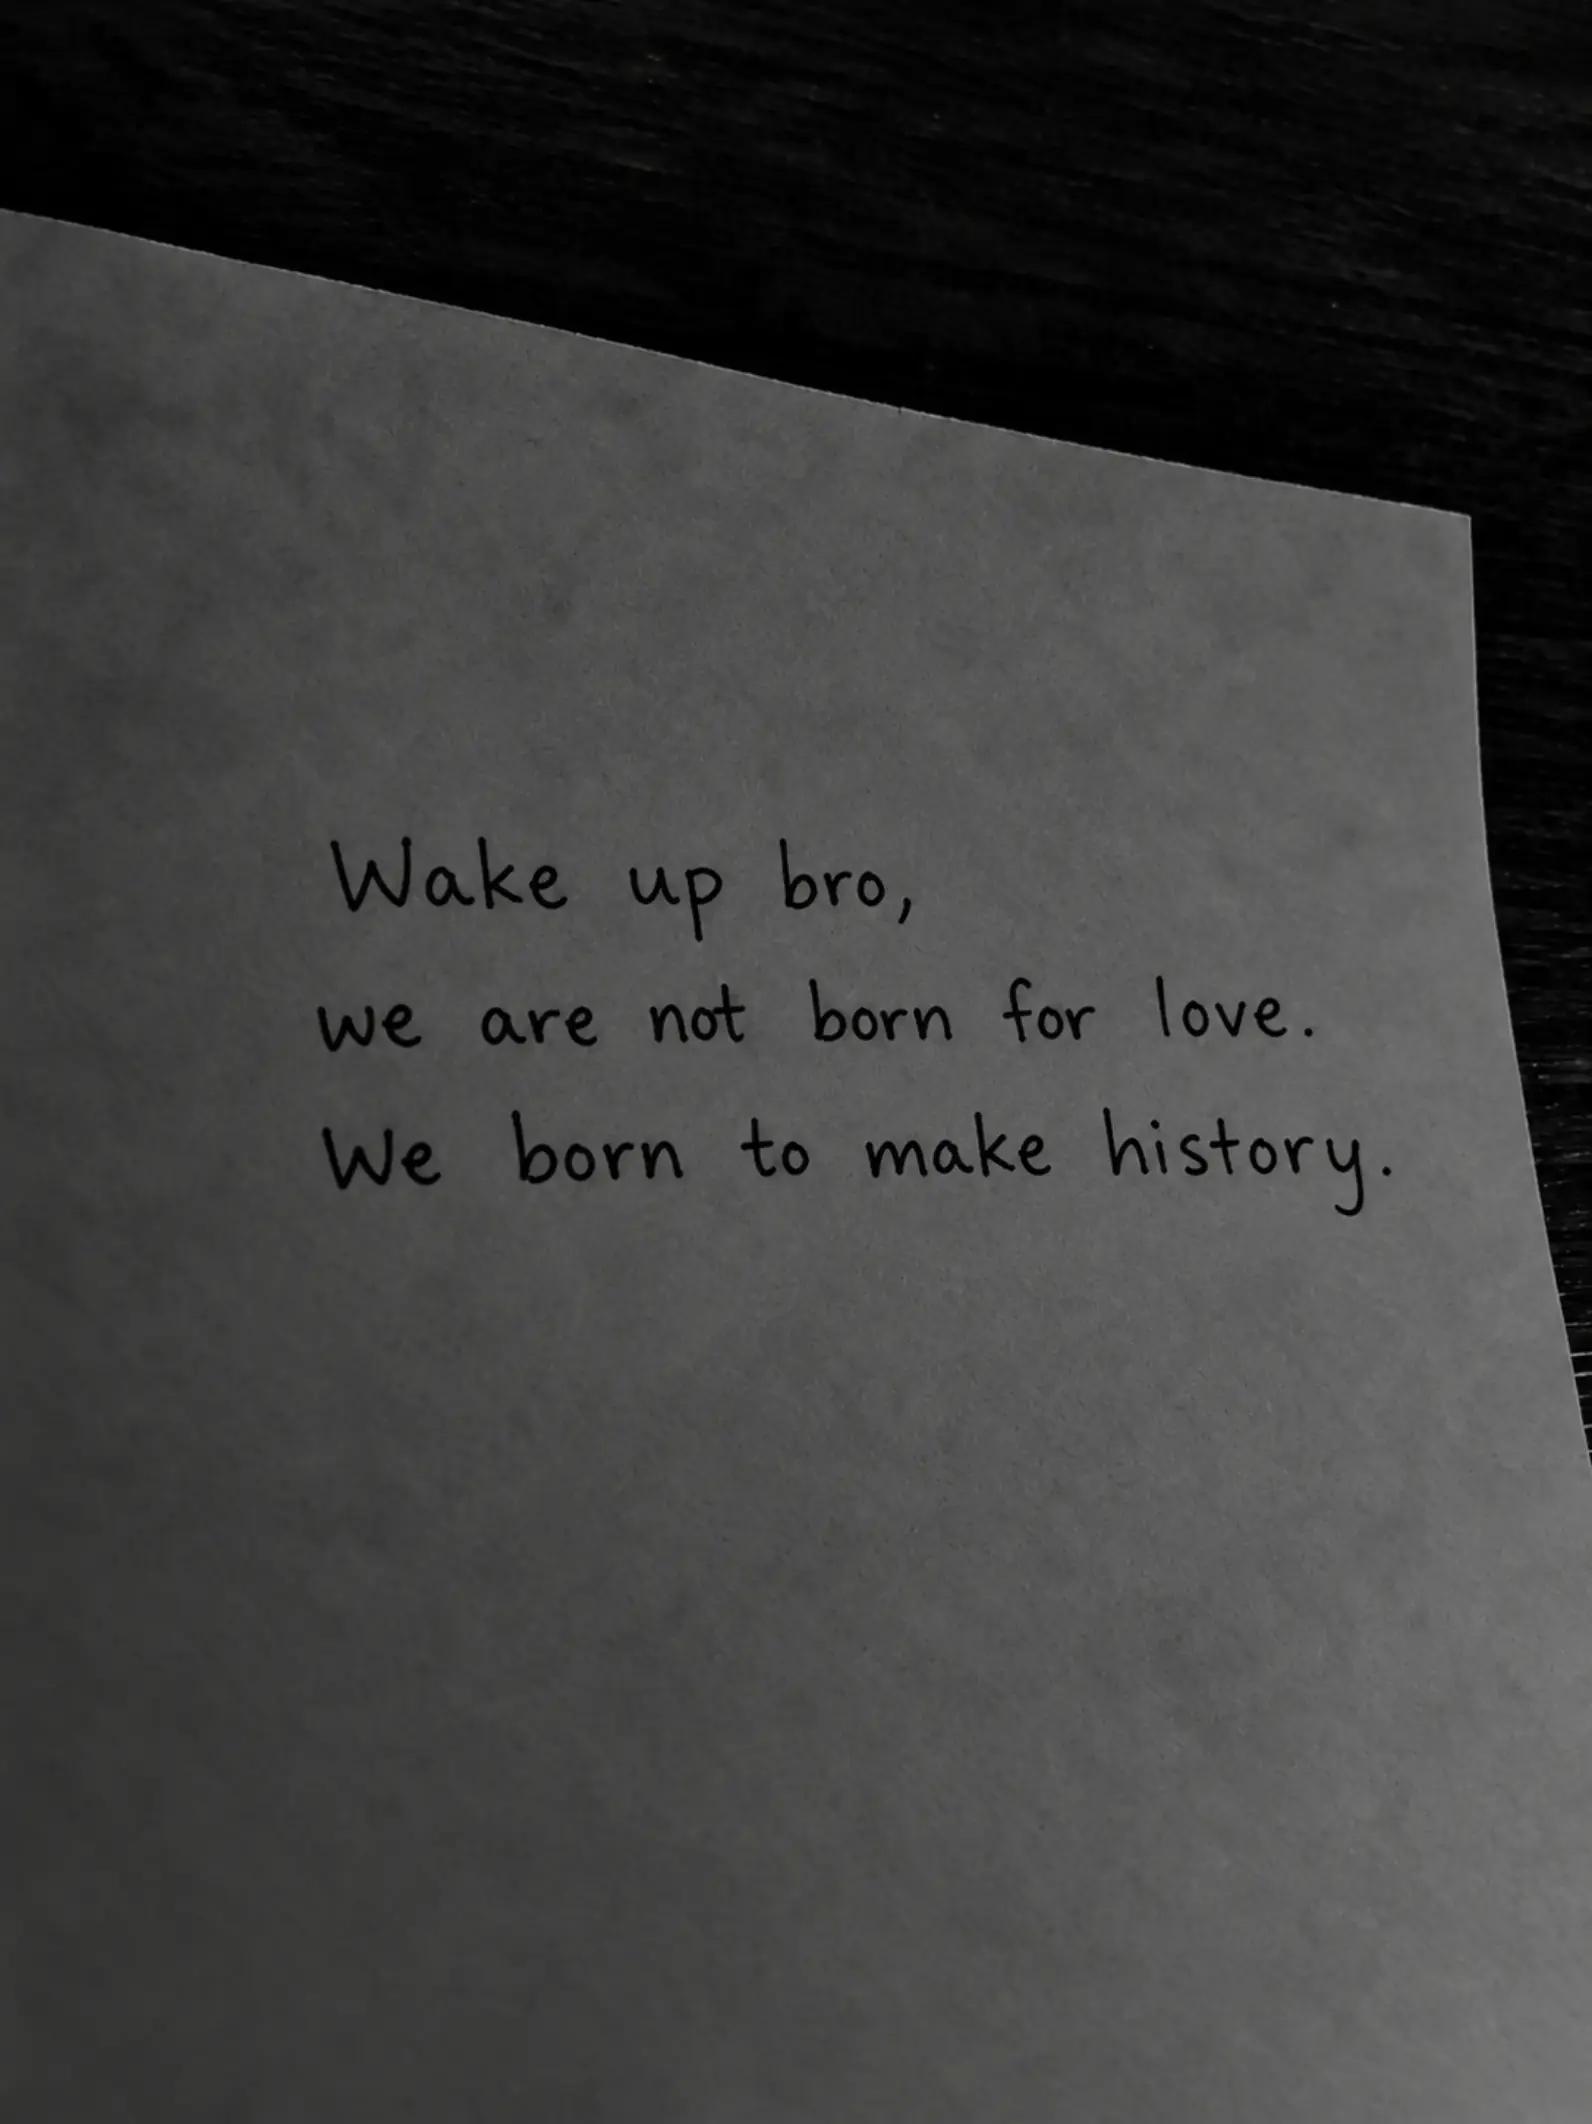 Wake up bro,
we are not born for love.
We born to make history.